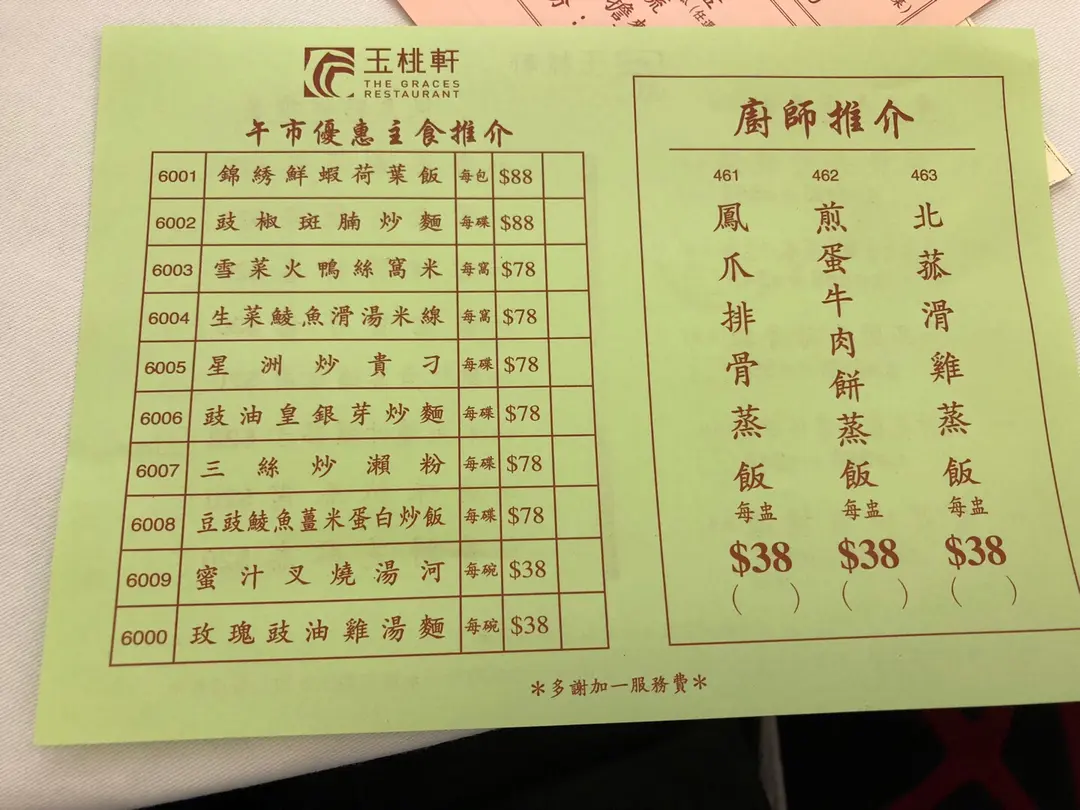 玉桃軒
THE GRACES
RESTAURANT
午市優惠主食推介
6001 錦綉鮮蝦荷葉飯 每包 $88
6002 豉椒斑腩炒麵 每碟 $88
6003 雪菜火鴨絲窩米 每窩 $78
6004 生菜鯪魚滑湯米線 每窩 $78
6005 星洲炒貴刁 每碟 $78
6006 豉油皇銀芽炒麵 每碟 $78
6007 三絲炒瀨粉 每碟 $78
6008 豆豉鯪魚薑米蛋白炒飯 每碟 $78
6009 蜜汁叉燒湯河 每碗 $38
6000 玫瑰豉油雞湯麵 每碗 $38
廚師推介
461 鳳爪排骨蒸飯 每盅 $38 ( )
462 煎蛋牛肉餅蒸飯 每盅 $38 ( )
463 北菰滑雞蒸飯 每盅 $38 ( )
*多謝加一服務費*